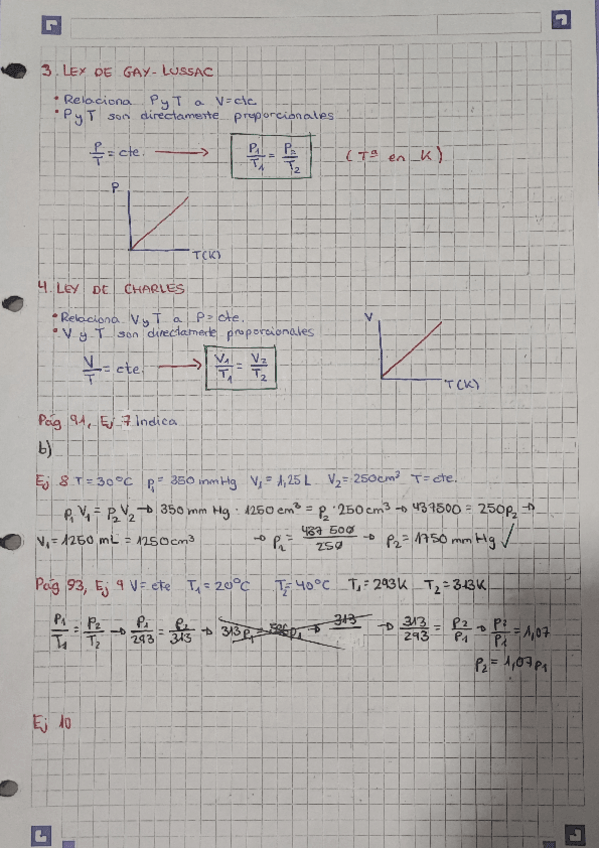 3. LEY DE GAY-LUSSAC
• Relaciona P y T a V=cte
• P y T son directamente proporcionales
P/T = cte. → P₁/T₁ = P₂/T₂ (Tª en K)
P
T(K)
4. LEY DE CHARLES
• Relaciona V y T a P=cte.
• V y T son directamente proporcionales
V/T = cte. → V₁/T₁ = V₂/T₂
V
T(K)
Pág 91, Ej 7 Indica
b)
Ej 8 T=30°C p₁= 350 mmHg V₁= 1,25L V₂=250cm³ T=cte.
p₁V₁ = p₂V₂ → 350 mm Hg · 1250 cm³ = p₂ · 250 cm³ → 437500 = 250p₂ →
V₁=1250 mL = 1250cm³ → p₂ = 437 500/250 → p₂ = 1750 mm Hg ✓
Pág 93, Ej 9 V= cte T₁=20°C T₂=40°C T₁=293K T₂=313K
p₁/T₁ = p₂/T₂ → p₁/293 = p₂/313 → 313p₁ = p₁ → 313 → 313/293 = p₂/p₁ → p₂/p₁ = 1,07
p₂ = 1,07p₁
Ej 10